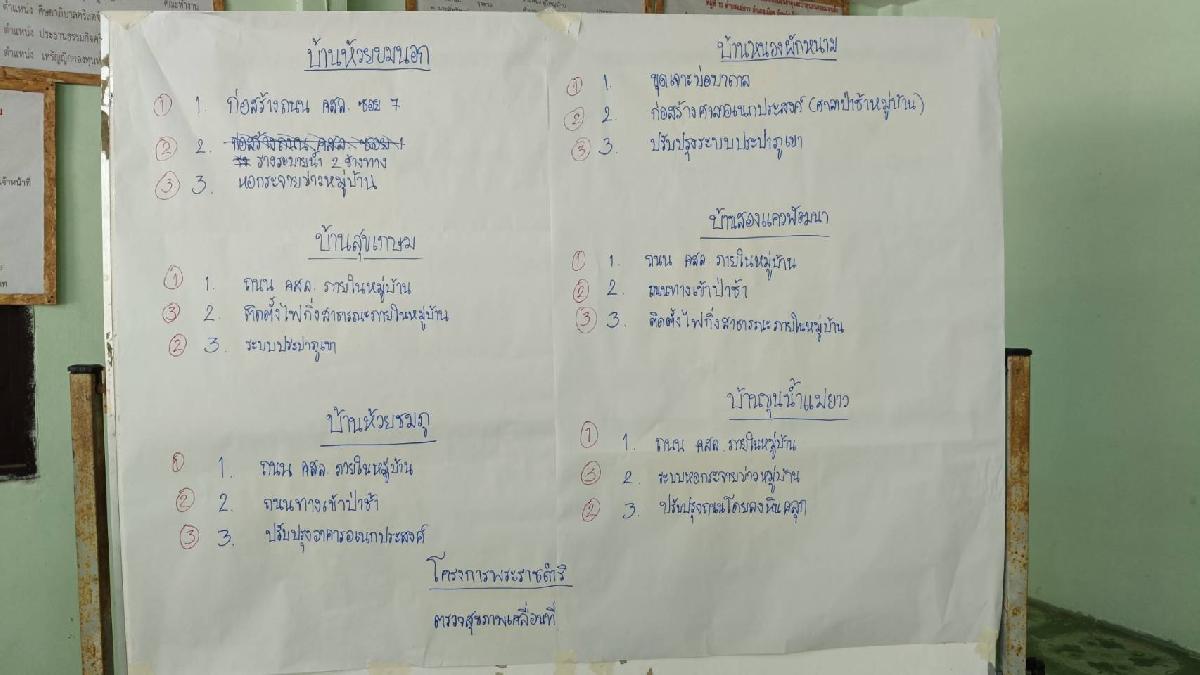 ตำแหน่ง ประธานธรรมกิจ
ตำแหน่ง เหรัญญิกกองทุน
คณะทำงาน
บ้านห้วยยมนอก
① 1. ก่อสร้างถนน คสล. ซอย 7
② 2. ก่อสร้างถนน คสล. ซอย 1
รางระบายน้ำ 2 ข้างทาง
③ 3. หอกระจายข่าวหมู่บ้าน
บ้านสุขเกษม
① 1. ถนน คสล. ภายในหมู่บ้าน
③ 2. ติดตั้งไฟกิ่งสาธารณะภายในหมู่บ้าน
② 3. ระบบประปาภูเขา
บ้านห้วยชมภู
① 1. ถนน คสล. ภายในหมู่บ้าน
② 2. ถนนทางเข้าป่าช้า
③ 3. ปรับปรุงอาคารอเนกประสงค์
บ้านหนองผักหนาม
① 1. ขุดเจาะบ่อบาดาล
② 2. ก่อสร้างศาลาอเนกประสงค์ (ศาลาป่าช้าหมู่บ้าน)
③ 3. ปรับปรุงระบบประปาภูเขา
บ้านสองแควพัฒนา
① 1. ถนน คสล ภายในหมู่บ้าน
② 2. ถนนทางเข้าป่าช้า
③ 3. ติดตั้งไฟกิ่งสาธารณะภายในหมู่บ้าน
บ้านขุนน้ำแม่ยาว
① 1. ถนน คสล. ภายในหมู่บ้าน
③ 2. ระบบหอกระจายข่าวหมู่บ้าน
② 3. ปรับปรุงถนนโดยลงหินคลุก
โครงการพระราชดำริ
ตรวจสุขภาพเคลื่อนที่